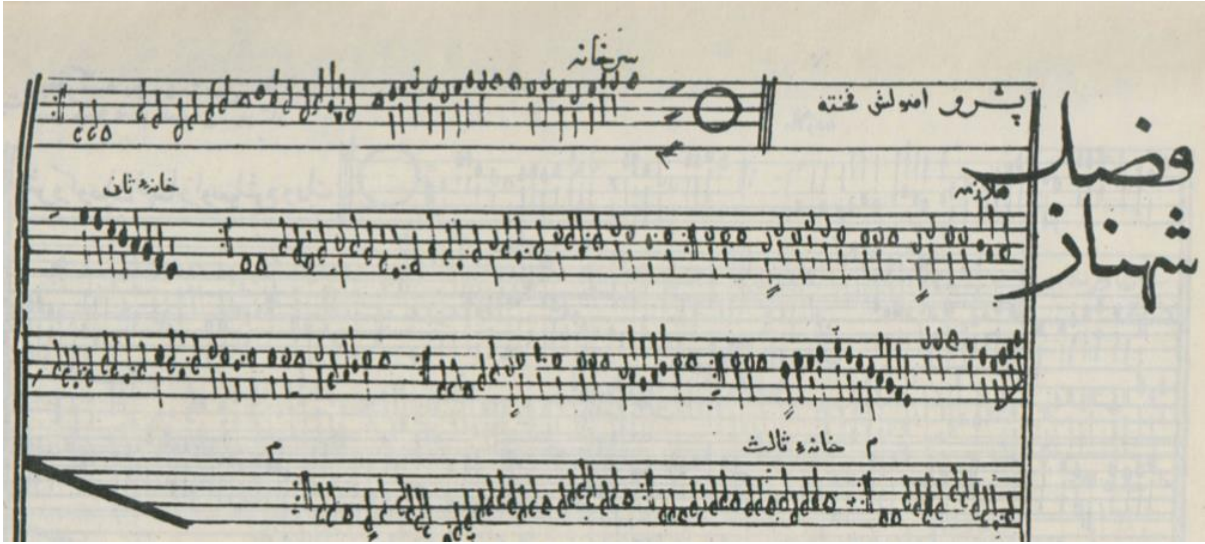 فصل
شهناز
پشرو اصولش فخته
سر خانه
ملازمه
خانهٔ ثانی
م خانهٔ ثالث
م